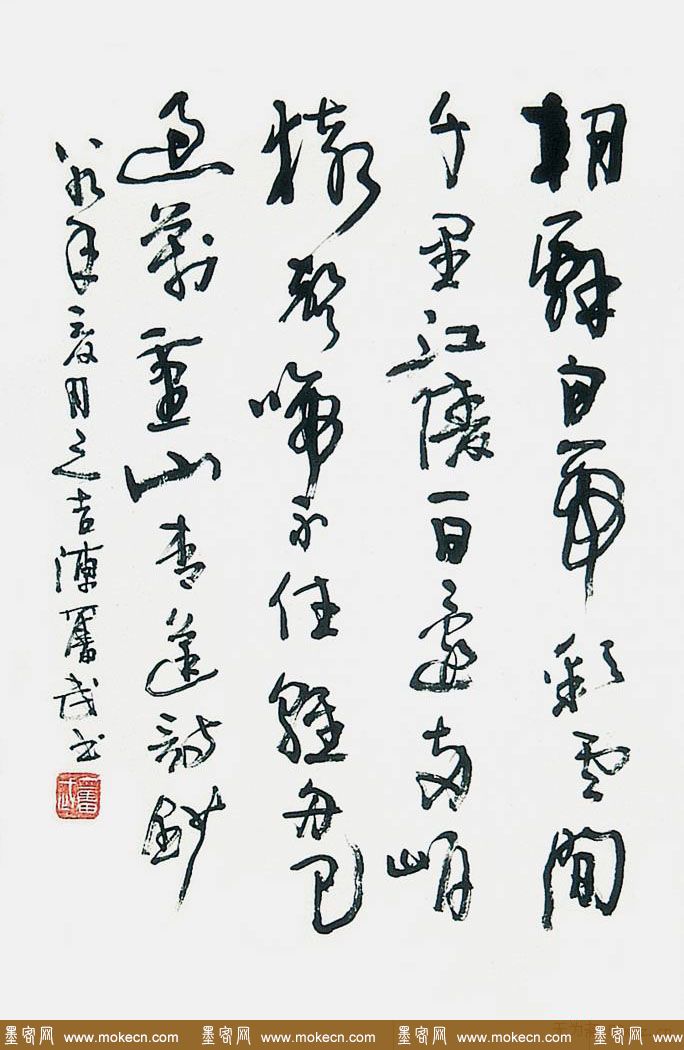 朝辭白帝彩雲間
千里江陵一日還兩岸
猿聲啼不住輕舟已
過萬重山青蓮詩鈔
年夏月之吉陳奮武書
奮武
墨客网 www.mokecn.com 墨客网 www.mokecn.com 墨客网 www.mokecn.com 墨客网 www